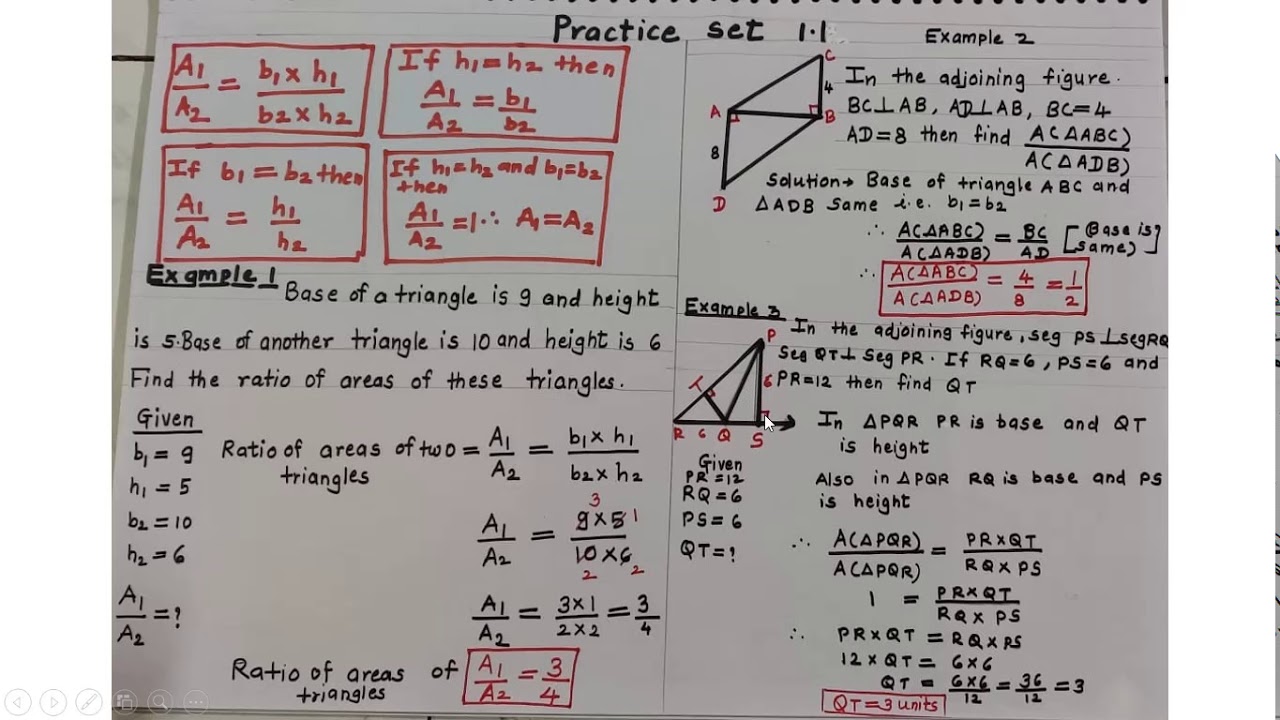 Practice set 1.1
A1/A2 = b1 x h1 / b2 x h2
If h1 = h2 then
A1/A2 = b1/b2
If b1 = b2 then
A1/A2 = h1/h2
If h1=h2 and b1=b2
then
A1/A2 = 1 ∴ A1=A2
Example 1
Base of a triangle is 9 and height
is 5. Base of another triangle is 10 and height is 6
Find the ratio of areas of these triangles.
Given
b1 = 9
h1 = 5
b2 = 10
h2 = 6
A1/A2 = ?
Ratio of areas of two = A1/A2 = b1 x h1 / b2 x h2
triangles
3
A1/A2 = 9 x 5 1 / 10 x 6
2 2
A1/A2 = 3x1 / 2x2 = 3/4
Ratio of areas of A1/A2 = 3/4
triangles
Example 2
C
4
A
B
8
D
In the adjoining figure.
BC⊥AB, AD⊥AB, BC=4
AD=8 then find A(△ABC) / A(△ADB)
Solution→ Base of triangle ABC and
△ADB Same i.e. b1=b2
∴ A(△ABC) / A(△ADB) = BC/AD [Base is
same)]
∴ A(△ABC) / A(△ADB) = 4/8 = 1/2
Example 3
P
T
6
R 6 Q S
In the adjoining figure, seg PS⊥segRQ
Seg QT⊥ Seg PR. If RQ=6, PS=6 and
PR=12 then find QT
Given
PR=12
RQ=6
PS=6
QT=?
In △PQR PR is base and QT
is height
Also in △PQR RQ is base and PS
is height
∴ A(△PQR) / A(△PQR) = PR×QT / RQ×PS
1 = PR×QT / RQ×PS
∴ PR×QT = RQ×PS
12×QT = 6×6
QT = 6×6 / 12 = 36/12 = 3
QT=3 units